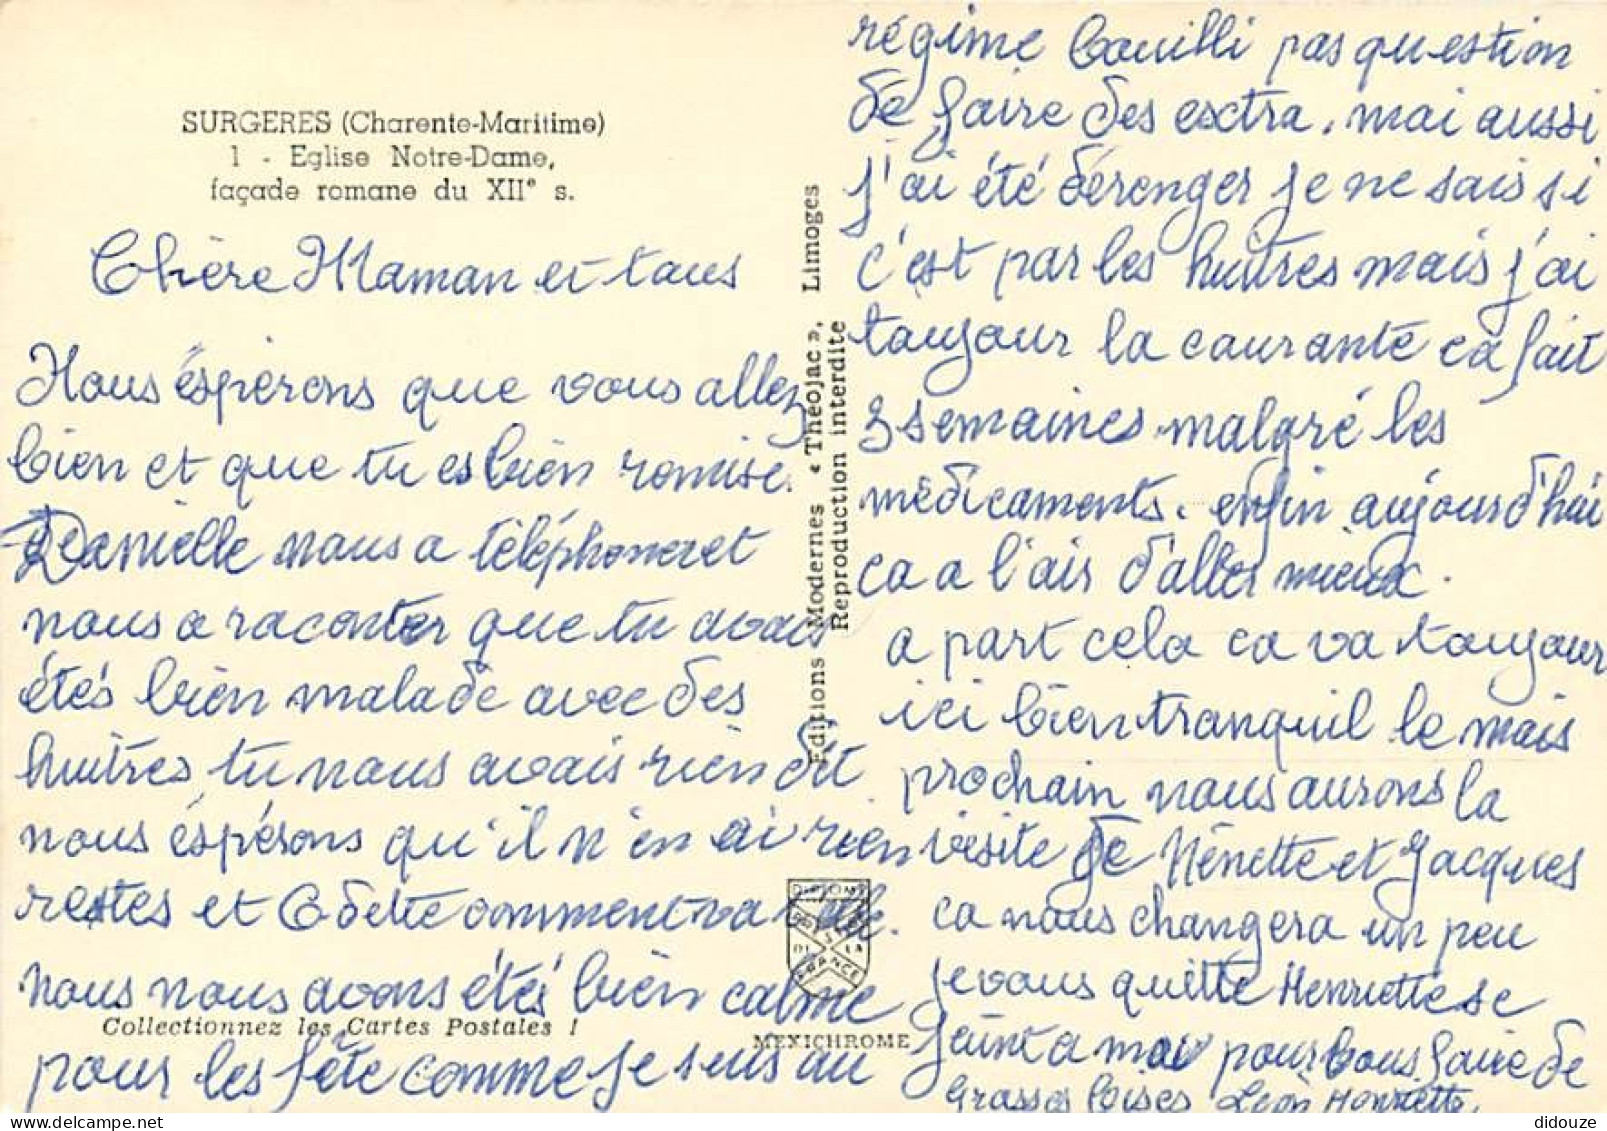 SURGERES (Charente-Maritime)
1 - Eglise Notre-Dame,
façade romane du XIIe s.
Chère Maman et tous
Nous éspérons que vous allez
bien et que tu es bien romise.
Danielle nous a téléphoneret
nous a raconter que tu avais
étés bien malade avec des
huitres, tu nous avais rien dit
nous éspérons qu'il n'en ai rien
restes et Odette comment va
nous nous avons étés bien calme
pour les fête comme je suis au
Collectionnez les Cartes Postales !
Editions Modernes « Théojac », Limoges
Reproduction interdite
DIPLOME
PRESTIGE
DE LA
FRANCE
MEXICHROME
régime bouilli pas question
de faire des esctra. mai aussi
j'ai été dérenger je ne sais si
c'est par les huitres mais j'ai
toujour la courante ca fait
3 semaines malgré les
médicaments. enfin aujourd'hui
ca a l'air d'aller mieux.
a part cela ca va toujour
ici bien tranquil le mais
prochain nous aurons la
visite de Nénette et Jacques
ca nous changera un peu
je vous quitte Henriette se
joint a moi pour vous faire de
Grosses bises Léon Henriette.
didouze @ delcampe.net